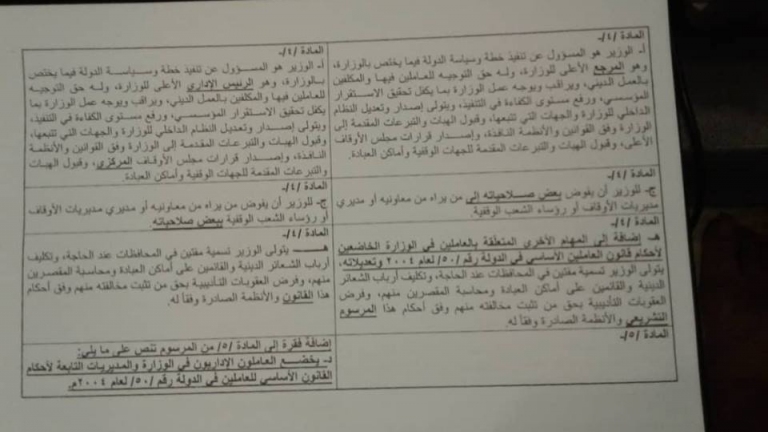 المادة /٤/-
أ- الوزير هو المسؤول عن تنفيذ خطة وسياسة الدولة فيما يختص بالوزارة،
وهو المرجع الأعلى للوزارة، وله حق التوجيه للعاملين فيها والمكلفين
بالعمل الديني، ويراقب ويوجه عمل الوزارة بما يكفل تحقيق الاستقرار
المؤسسي، ورفع مستوى الكفاءة في التنفيذ، ويتولى إصدار وتعديل النظام
الداخلي للوزارة والجهات التي تتبعها، وقبول الهبات والتبرعات المقدمة إلى
الوزارة وفق القوانين والأنظمة النافذة، وإصدار قرارات مجلس الأوقاف
الأعلى، وقبول الهبات والتبرعات المقدمة للجهات الوقفية وأماكن العبادة.
المادة /٤/-
أ- الوزير هو المسؤول عن تنفيذ خطة وسياسة الدولة فيما يختص
بالوزارة، وهو الرئيس الإداري الأعلى للوزارة، وله حق التوجيه
للعاملين فيها والمكلفين بالعمل الديني، ويراقب ويوجه عمل الوزارة بما
يكفل تحقيق الاستقرار المؤسسي، ورفع مستوى الكفاءة في التنفيذ،
ويتولى إصدار وتعديل النظام الداخلي للوزارة والجهات التي تتبعها،
وقبول الهبات والتبرعات المقدمة إلى الوزارة وفق القوانين والأنظمة
النافذة، وإصدار قرارات مجلس الأوقاف المركزي، وقبول الهبات
والتبرعات المقدمة للجهات الوقفية وأماكن العبادة.
المادة /٤/-
ج- للوزير أن يفوض بعض صلاحياته إلى من يراه من معاونيه أو مديري
مديريات الأوقاف أو رؤساء الشعب الوقفية.
المادة /٤/-
ج- للوزير أن يفوض من يراه من معاونيه أو مديري مديريات الأوقاف
أو رؤساء الشعب الوقفية ببعض صلاحياته.
المادة /٤/-
هـ- إضافة إلى المهام الأخرى المتعلقة بالعاملين في الوزارة الخاضعين
لأحكام قانون العاملين الأساسي في الدولة رقم /٥٠/ لعام ٢٠٠٤ وتعديلاته،
يتولى الوزير تسمية مفتين في المحافظات عند الحاجة، وتكليف أرباب الشعائر
الدينية والقائمين على أماكن العبادة ومحاسبة المقصرين منهم، وفرض
العقوبات التأديبية بحق من تثبت مخالفته منهم وفق أحكام هذا المرسوم
التشريعي والأنظمة الصادرة وفقاً له.
المادة /٤/-
هـ- يتولى الوزير تسمية مفتين في المحافظات عند الحاجة، وتكليف
أرباب الشعائر الدينية والقائمين على أماكن العبادة ومحاسبة المقصرين
منهم، وفرض العقوبات التأديبية بحق من تثبت مخالفته منهم وفق أحكام
هذا القانون والأنظمة الصادرة وفقاً له.
المادة /٥/-
إضافة فقرة إلى المادة /٥/ من المرسوم تنص على ما يلي:
د- يخضع العاملون الإداريون في الوزارة والمديريات التابعة لأحكام
القانون الأساسي للعاملين في الدولة رقم /٥٠/ لعام ٢٠٠٤م.